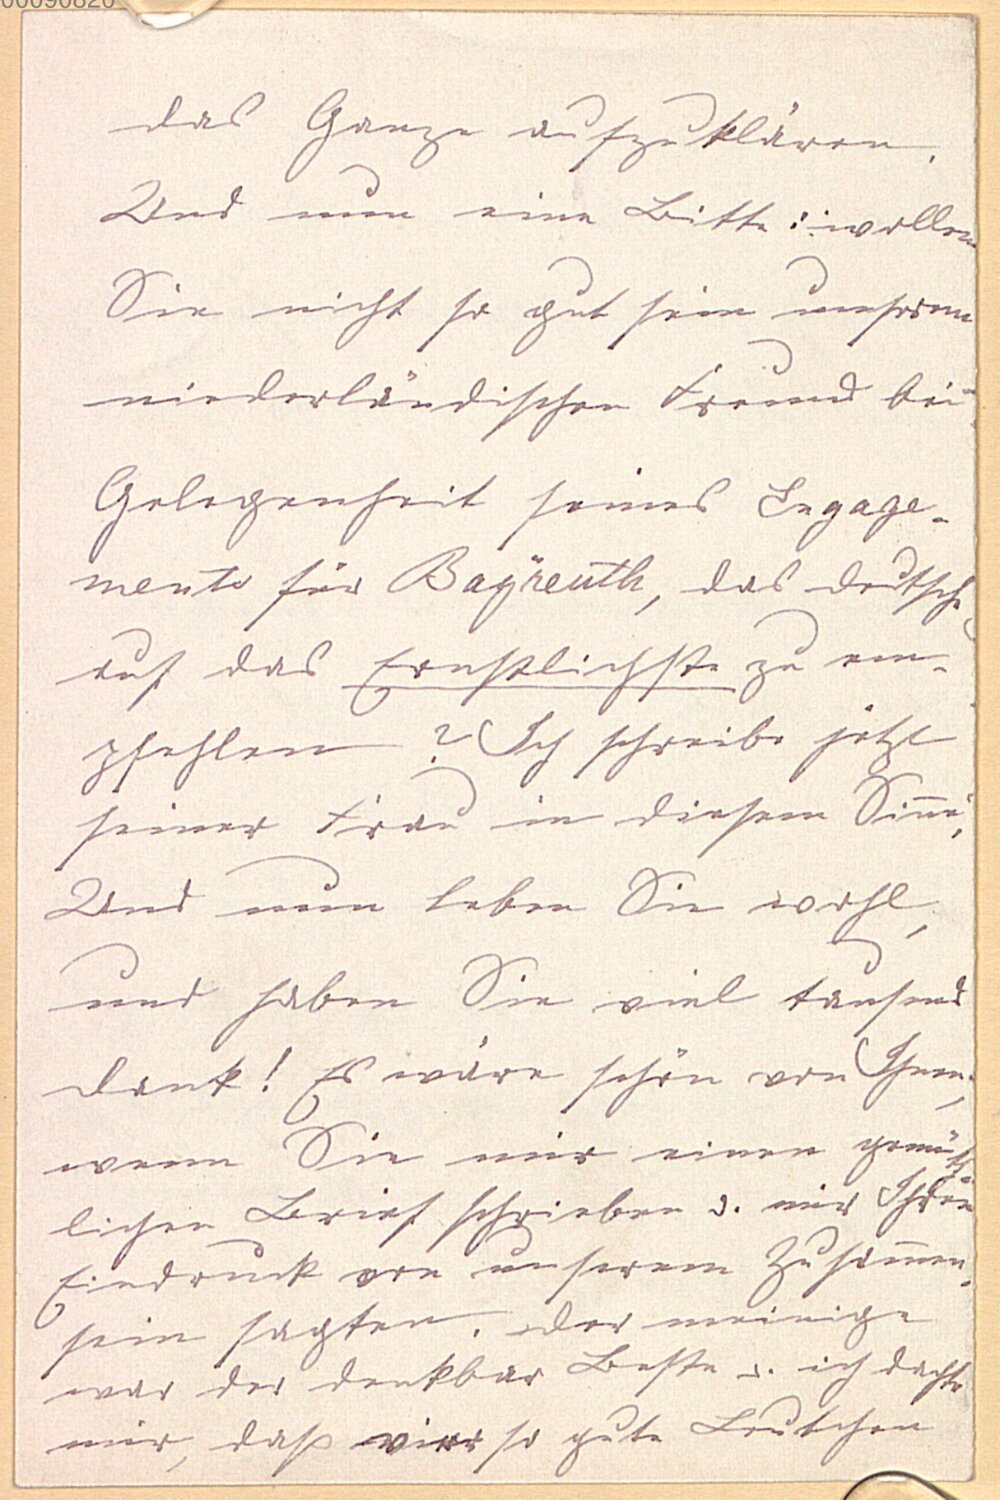 00090820
das Ganze aufzuklären.
Und nun eine Bitte: wollen
Sie nicht so gut sein unserem
niederländischen Freund bei
Gelegenheit seines Engage-
ments für Bayreuth, das deutsche
auf das Ernstlichste zu em-
pfehlen? Ich schreibe jetzt
seiner Frau in diesem Sinne,
Und nun leben Sie wohl,
und haben Sie viel tausend
Dank! Es wäre schön von Ihnen,
wenn Sie mir einen gemüth-
lichen Brief schrieben u. mir Ihren
Eindruck von unserem Zusammen-
sein sagten. Der meinige
war der denkbar Beste u. ich dachte
mir, daß wir so gute Leutchen